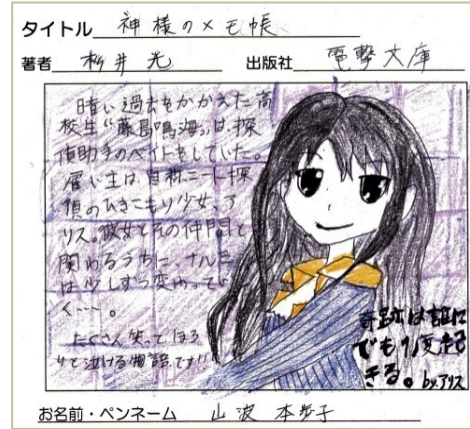 タイトル 神様のメモ帳
著者 杉井光 出版社 電撃文庫
暗い過去をかかえた高
校生"藤島鳴海"は、探
偵助手のバイトをしていた。
雇い主は、自称ニート探
偵のひきこもり少女、ア
リス。彼女とその仲間と
関わるうちに、ナルミ
は少しずつ変わってい
く…。
たくさん笑ってほろ
りと泣ける物語です!!
奇跡は誰に
でも1度起
きる。byアリス
お名前・ペンネーム 山波 本歩子